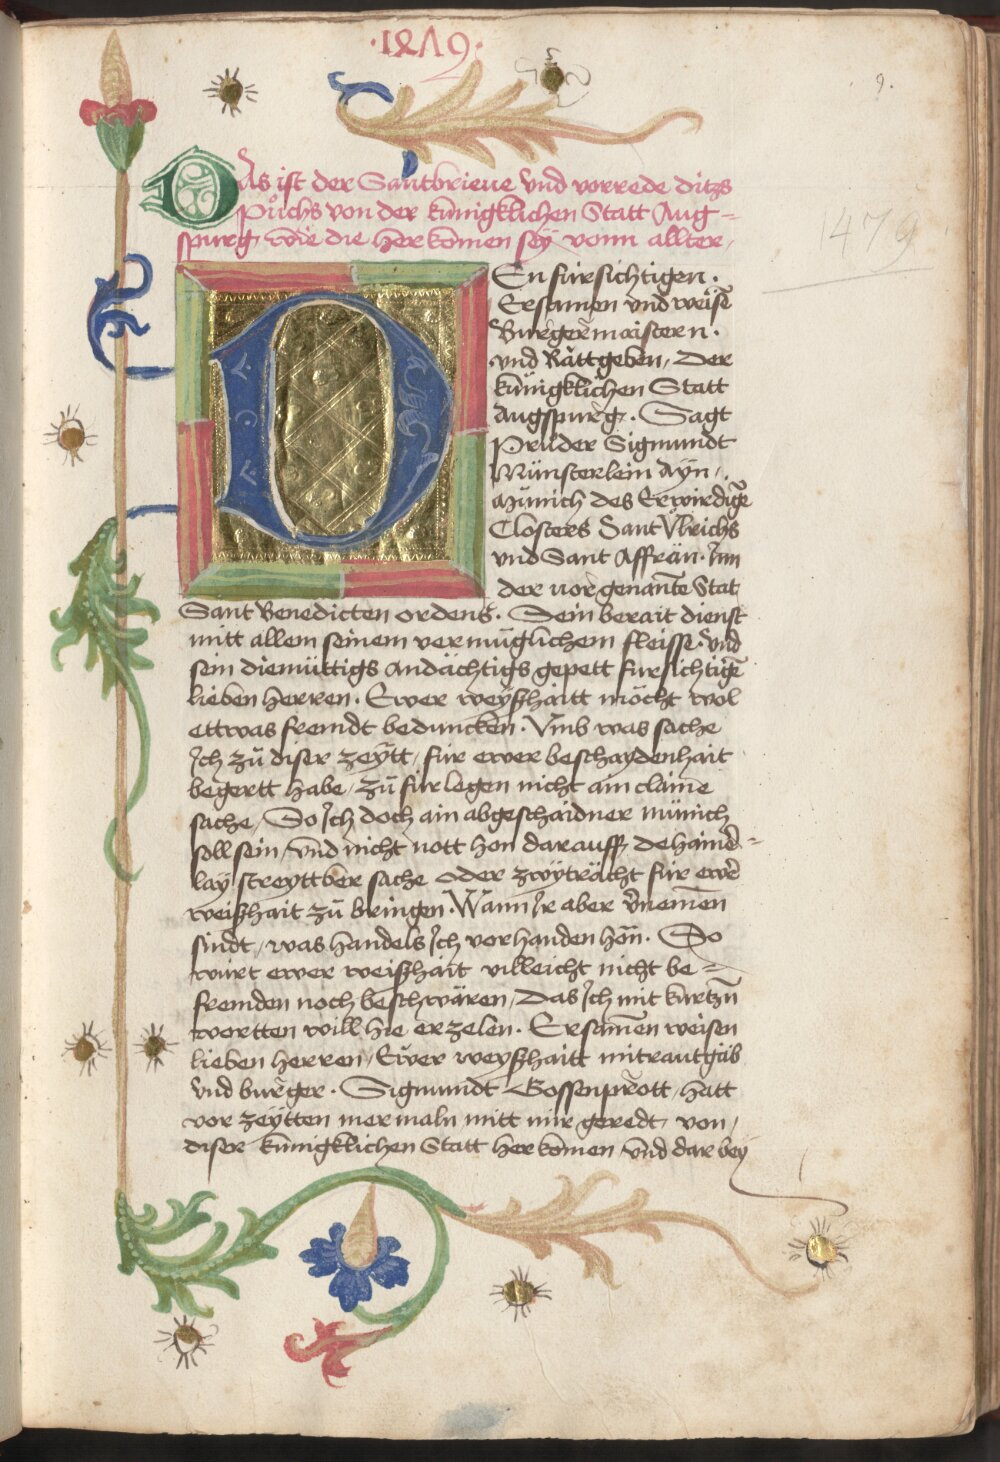 ·1479·
9.
DAs ist der Santbrieue vnd vorrede ditzs
Půchs von der künigklichen Statt Aug=
spurg wie die herkomen sey vonn allter,
1479
DEn fürsichtigen.
Ersamen vnd weisē
Burgermaistern.
vnd Rättgeben, Der
künigklichen Statt
Augspurg. Sagt
Prüder Sigmundt
Münsterlein Ayn,
Münich des Erwirdigē
Closters Sant Ůlrichs
vnd Sant Affran. Jnn
der vor genantē Stat
Sant Benedicten ordens. Sein berait dienst
mitt allem seinem vermüglichem fleisse. vnd
sein diemüttigs andächtigs gepett fursichtigē
lieben herren. Ewer weyßhaitt möcht wol
ettwas fremdt beduncken. Vmb was sache
Jch zů diser zeÿtt, für ewer beschaydenhait
begertt habe, zů für legen nicht ain clainē
sache, So Jch doch ain abgeschaidner münich
soll sein, vnd nicht nott hon darauff dehaind=
lay streyttber sache oder zwÿträcht für ewer
weißhait zů bringen. Wann Jr aber v̄nemen
sindt, was handels Jch vorhanden hān. So
würt ewer weißhait villeicht nicht be=
fremden noch beschwären, Das Jch mit kurtzn̄
wortten will hie erzelen. Ersamen weisen
lieben herren, Ewer weyßhaitt mitrautgäb
vnd burger. Sigmundt Gossenprott, hatt
vor zeÿtten mermaln mitt mir geredt von,
diser künigklichen Statt herkomen vnd dar bey